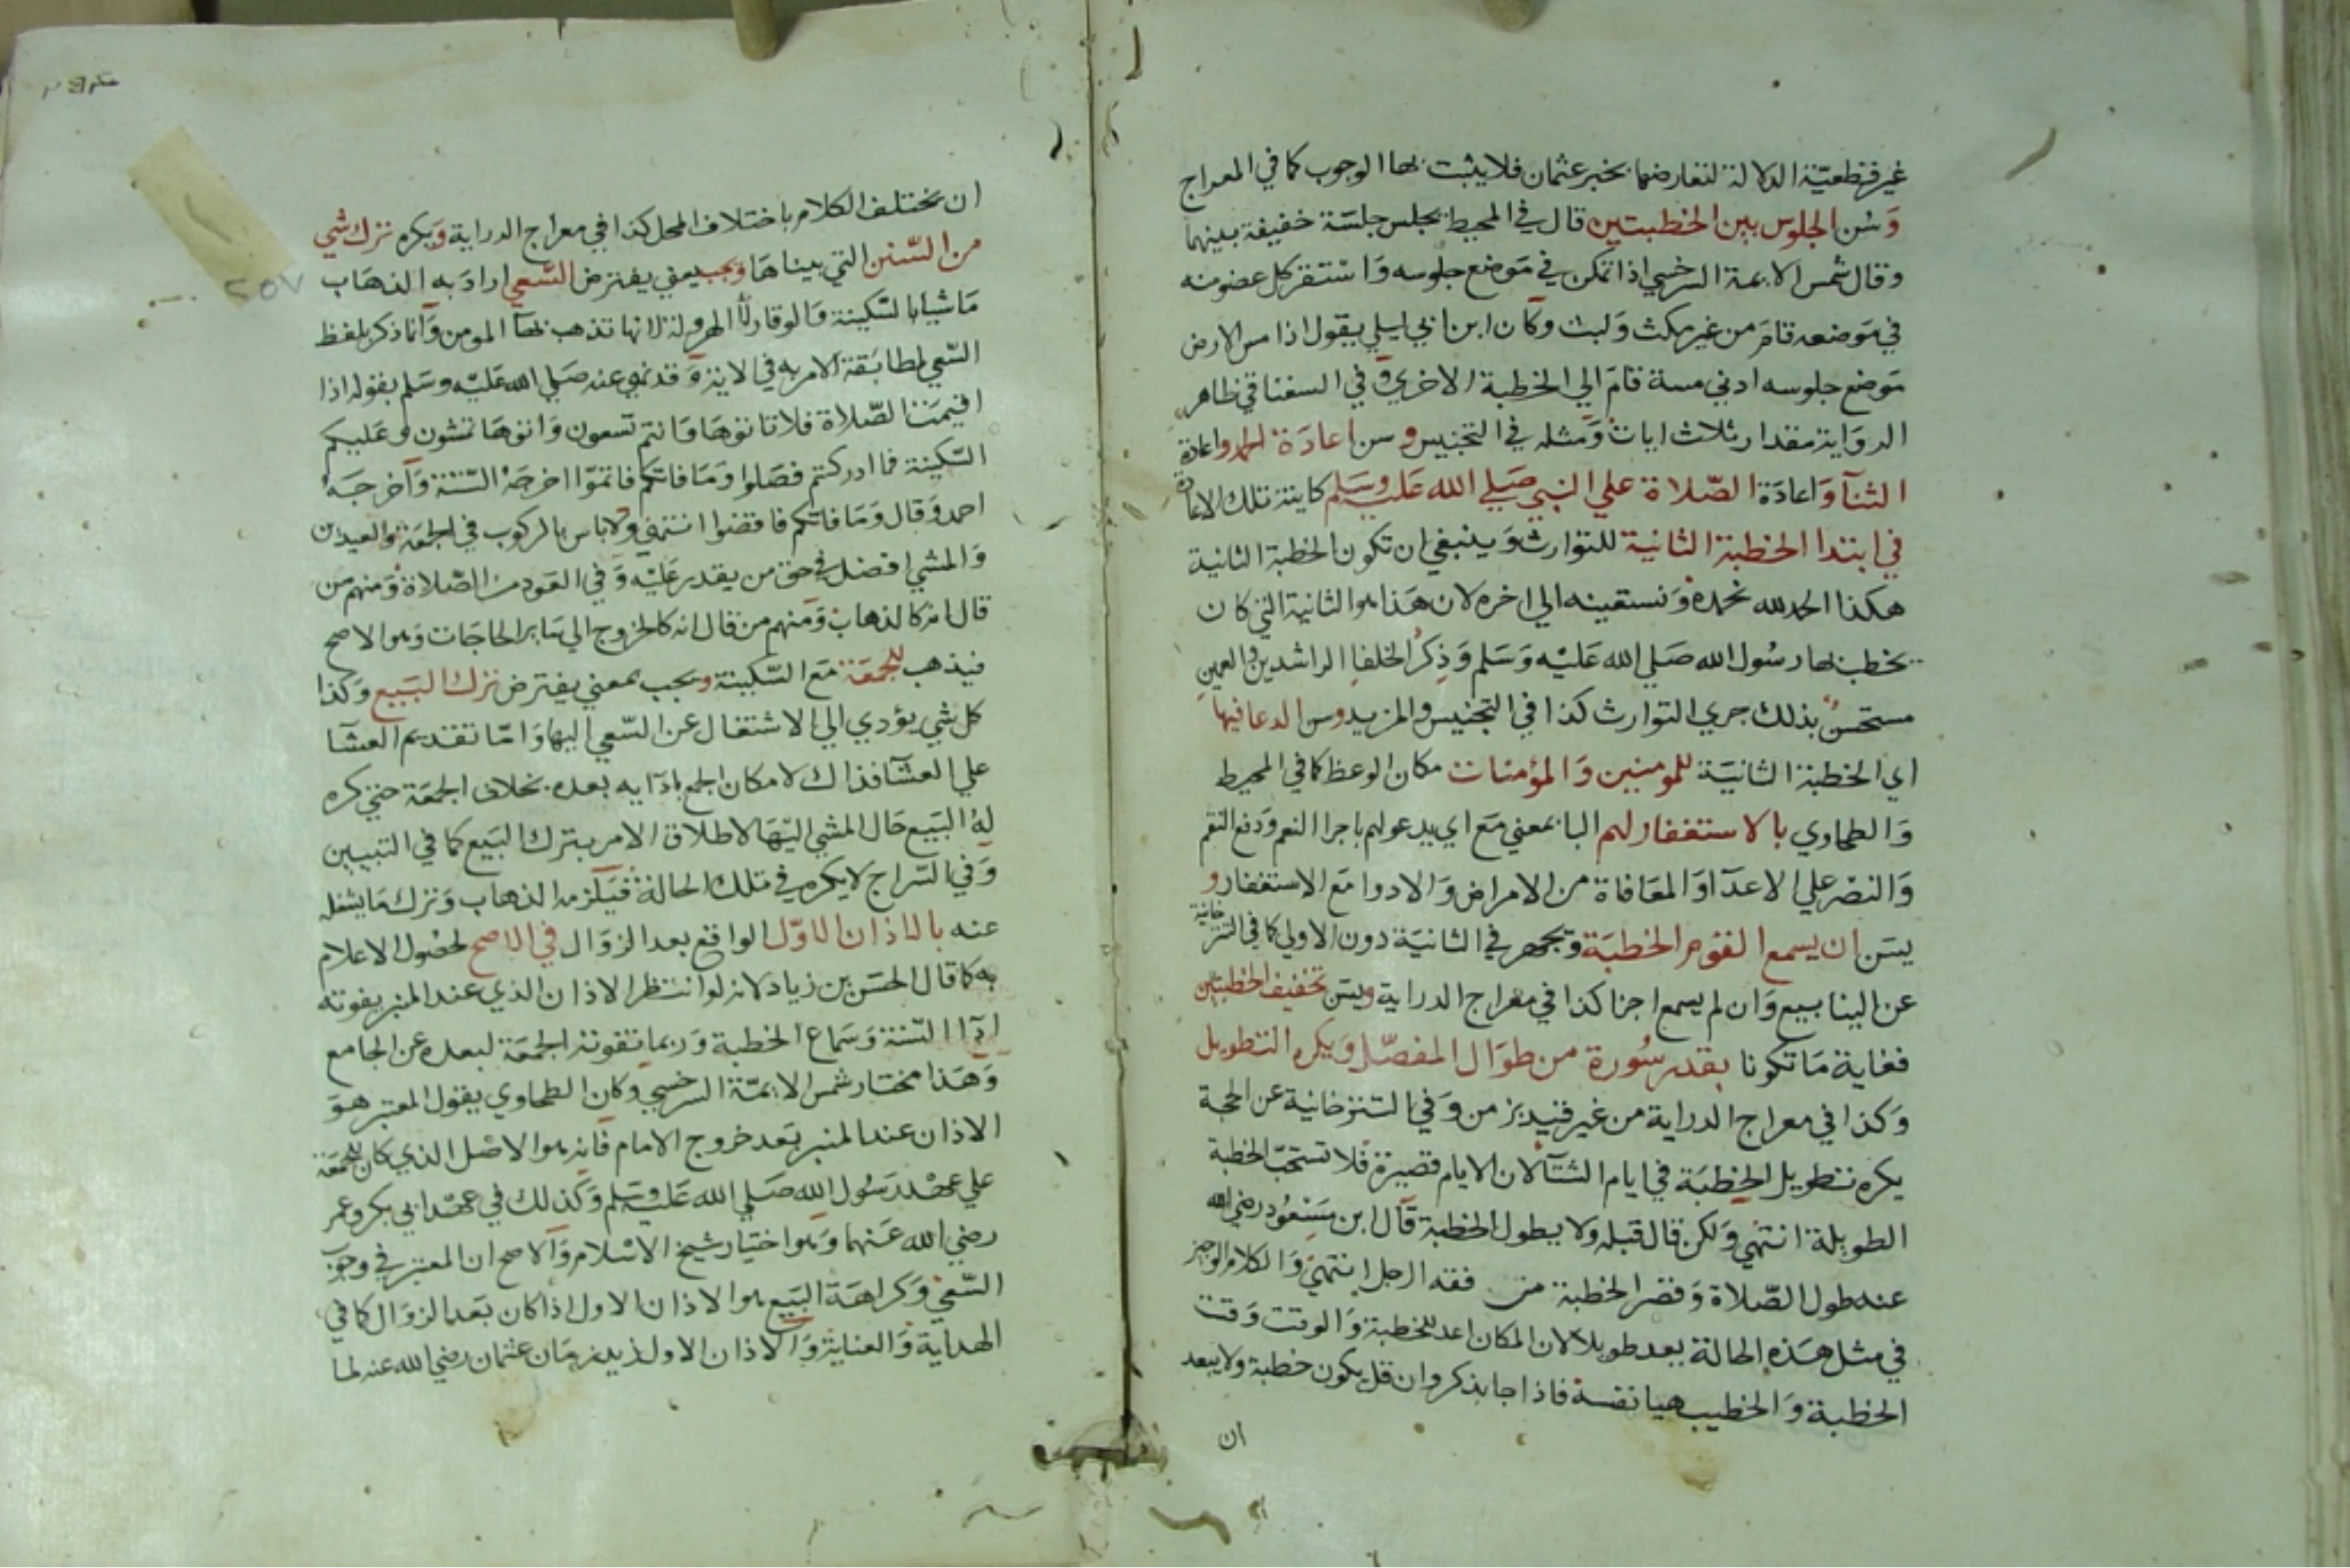 غير قطعية الدلالة لتعارضهما بخبر عثمان فلا يثبت بها الوجوب كما في المعراج
وسن الجلوس بين الخطبتين قال في المحيط يجلس جلسة خفيفة بينهما
وقال شمس الايمة السرخسي اذا تمكن في موضع جلوسه واستقر كل عضو منه
في موضعه قام من غير مكث ولبث وكان ابن ابي ليلي يقول اذا مس الارض
موضع جلوسه ادني مسة قام الي الخطبة الاخري وفي السغناقي ظاهر
الرواية مقدار ثلاث ايات ومثله في التجنيس وسن اعادة الحمد واعادة
الثنآ واعادة الصلاة علي النبي صلي الله عليه وسلم كاينة تلك الاعادة
في ابتدا الخطبة الثانية للتوارث وينبغي ان تكون الخطبة الثانية
هكذا الحمد لله نحمده ونستعينه الي اخره لان هذا هو الثانية التي كان
يخطب بها رسول الله صلي الله عليه وسلم وذكر الخلفا الراشدين والعمين
مستحسن بذلك جري التوارث كذا في التجنيس والمزيد وسن الدعا فيها
اي الخطبة الثانية للمومنين والمؤمنات مكان الوعظ كما في المحيط
والطحاوي بالاستغفار لهم البا بمعني مع اي يدعو لهم باجرا النعم ودفع النقم
والنصر علي الاعدآ والمعافاة من الامراض والادوا مع الاستغفار و
يسن ان يسمع القوم الخطبة ويجهر في الثانية دون الاولي كما في التترخانية
عن الينابيع وان لم يسمع اجزا كذا في معراج الدراية ويسن تخفيف الخطبتين
فغاية ما تكونا بقدر سورة من طوال المفصل ويكره التطويل
وكذا في معراج الدراية من غير قيد بزمن وفي التترخانية عن الحجة
يكره تطويل الخطبة في ايام الشتآ لان الايام قصيرة فلا تستحب الخطبة
الطويلة انتهي ولكن قال قبله ولا يطول الخطبة قال ابن مسعود رضي الله
عنه طول الصلاة وقصر الخطبة من فقه الرجل انتهي والكلام الوجيز
في مثل هذه الحالة يعد طويلا لان المكان اعد للخطبة والوقت وقت
الخطبة والخطيب هيا نفسه فاذا جا بذكر وان قل يكون خطبة ولا يبعد
ان
ان يختلف الكلام باختلاف المحل كذا في معراج الدراية ويكره ترك شي
من السنن التي بيناها ويجب يعني يفترض السعي اراد به الذهاب
ماشيا بالسكينة والوقار لا الهرولة لانها تذهب بهآ المومن وانما ذكر بلفظ
السعي لمطابقة الامر به في الاية وقد نهي عنه صلي الله عليه وسلم بقوله اذا
اقيمت الصلاة فلا تاتوها وانتم تسعون واتوها تمشون وعليكم
السكينة فما ادركتم فصلوا وما فاتكم فاتموا اخرجه الستة واخرجه
احمد وقال وما فاتكم فاقضوا انتهي ولا باس بالركوب في الجمعة والعيدين
والمشي افضل في حق من يقدر عليه وفي العود من الصلاة ومنهم من
قال انه كالذهاب ومنهم من قال انه كالخروج الي ساير الحاجات وهو الاصح
فيذهب للجمعة مع السكينة ويجب بمعني يفترض ترك البيع وكذا
كل شي يؤدي الي الاشتغال عن السعي اليها واما تقديم العشآ
علي العشآ فذاك لامكان الجمع بادآيه بعده بخلاف الجمعة حتي كره
له البيع حال المشي اليها لاطلاق الامر بترك البيع كما في التبيين
وفي السراج لا يكره في تلك الحالة فيلزمه الذهاب وترك ما يشغله
عنه بالاذان الاول الواقع بعد الزوال في الاصح لحصول الاعلام
به كما قال الحسن بن زياد لانه لو انتظر الاذان الذي عند المنبر يفوته
ادآ السنة وسماع الخطبة وربما تفوته الجمعة لبعده عن الجامع
وهذا مختار شمس الايمة السرخسي وكان الطحاوي يقول المعتبر هو
الاذان عند المنبر بعد خروج الامام فانه هو الاصل الذي كان للجمعة
علي عهد رسول الله صلي الله عليه وسلم وكذلك في عهد ابي بكر وعمر
رضي الله عنهما وهو اختيار شيخ الاسلام والاصح ان المعتبر في وجوب
السعي وكراهة البيع هو الاذان الاول اذا كان بعد الزوال كما في
الهداية والعناية والاذان الاول زيد زمان عثمان رضي الله عنه لما
٢٥٧